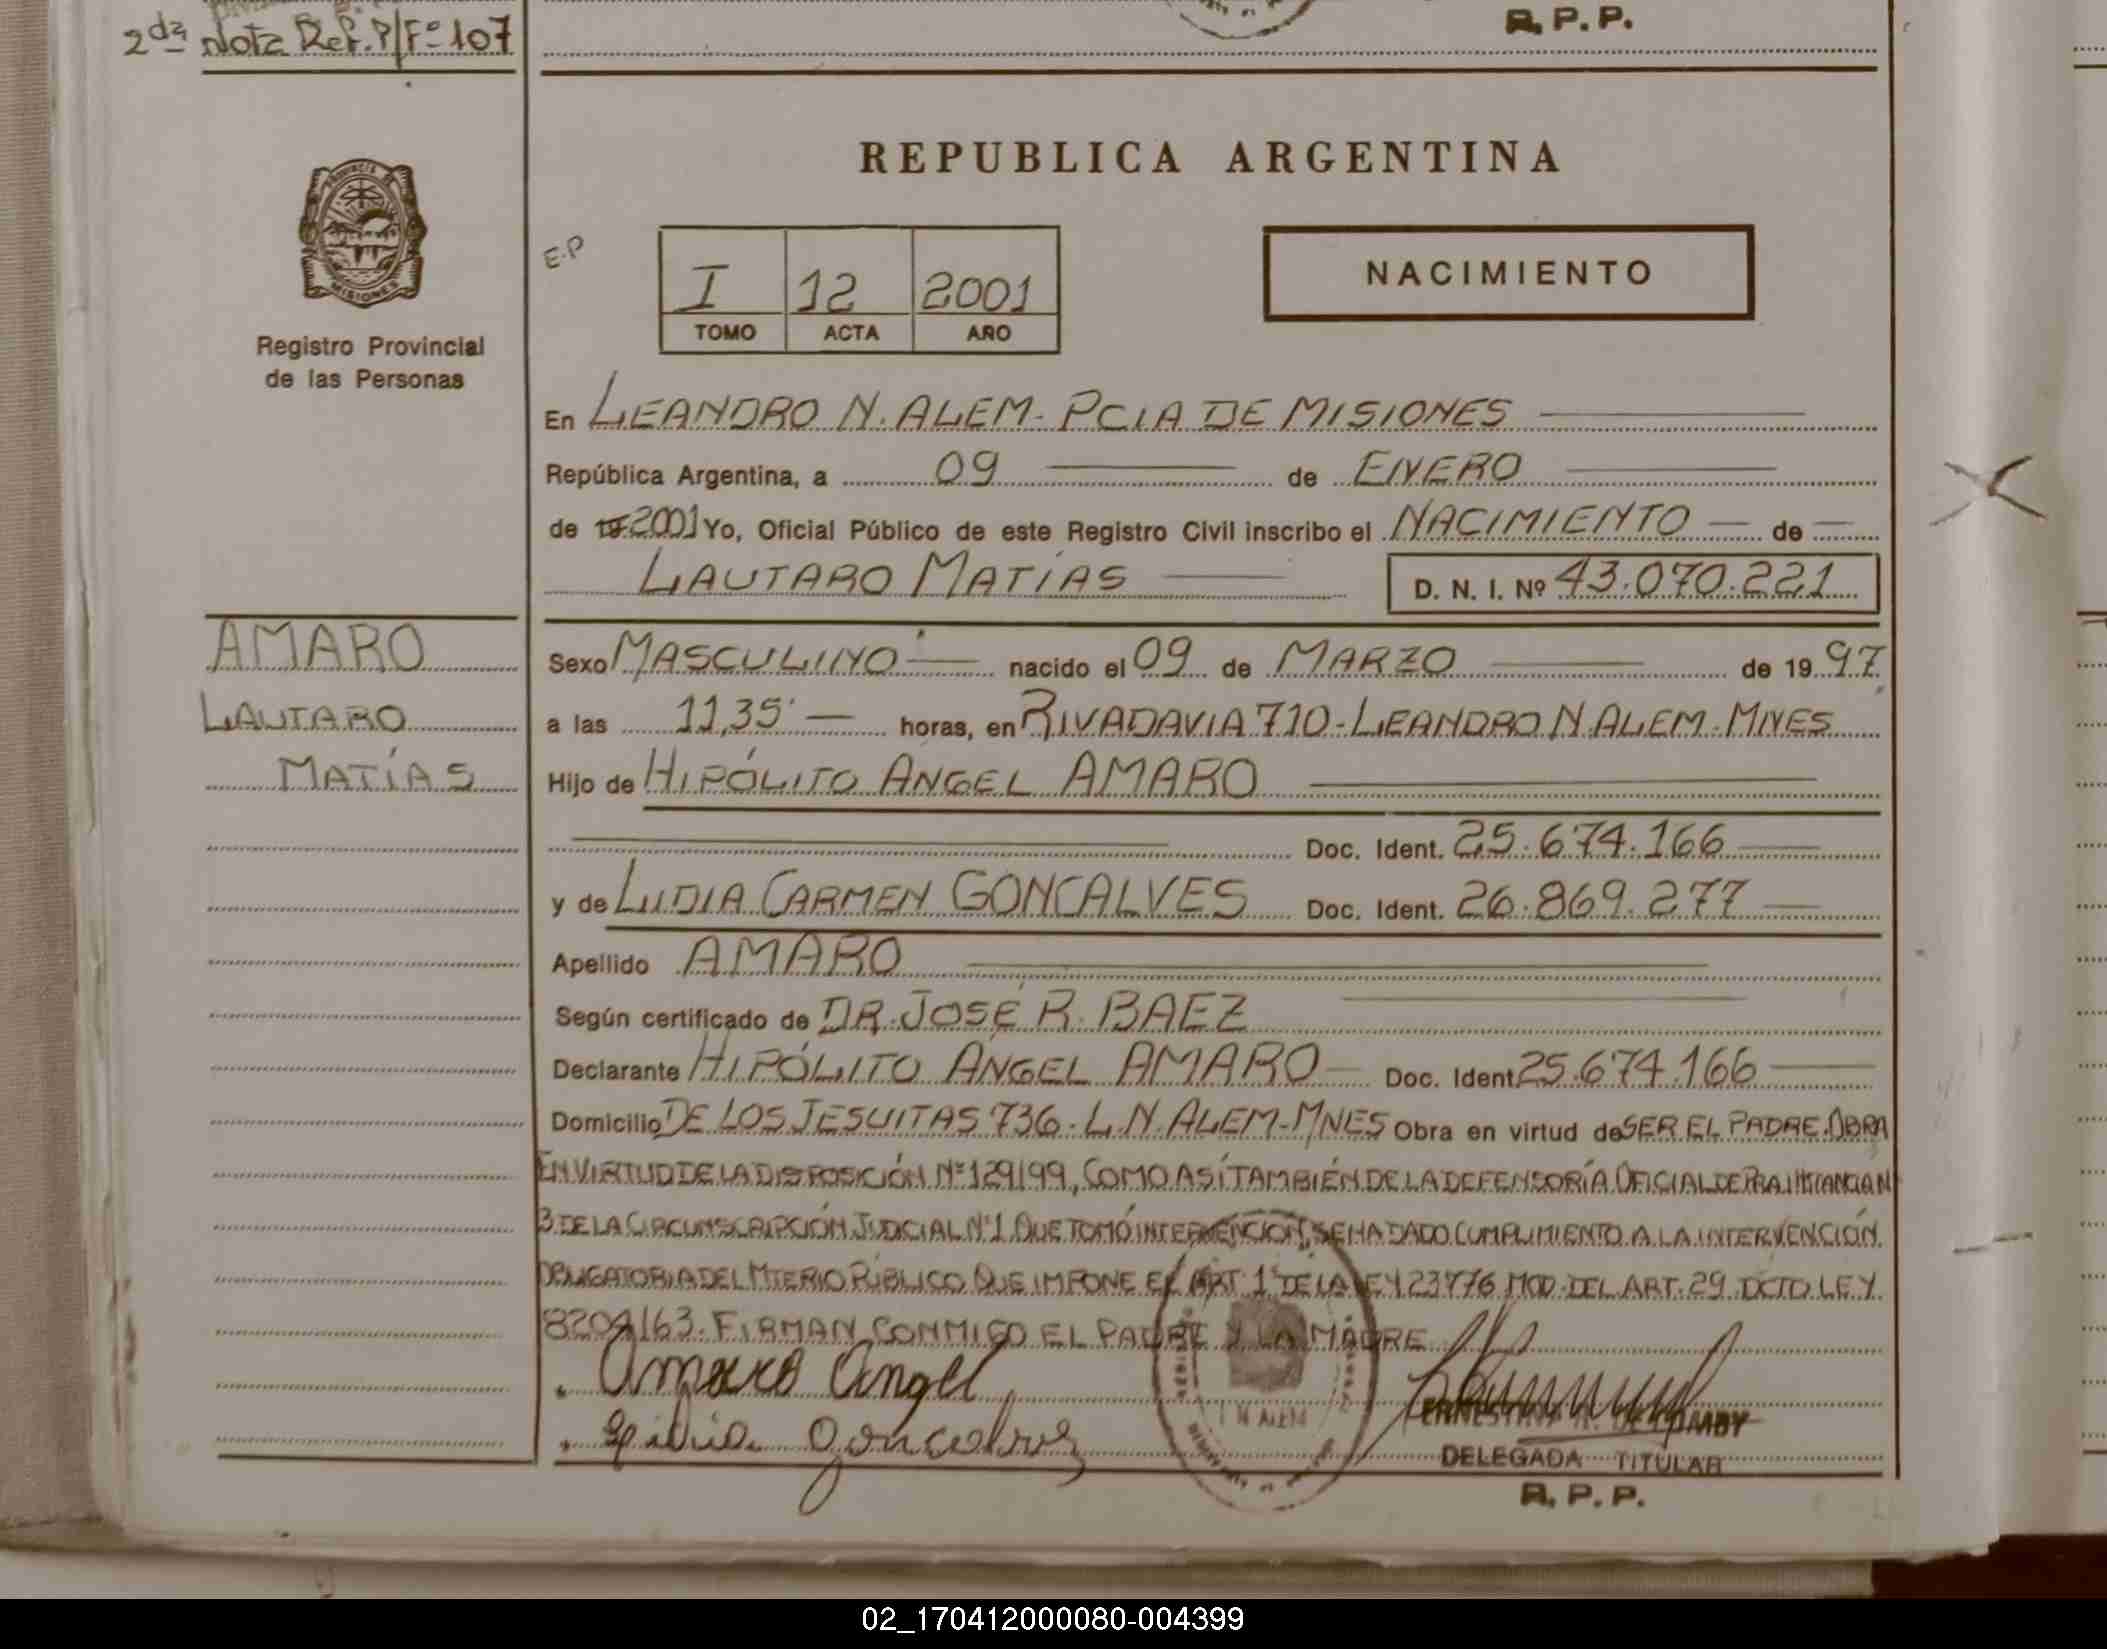 2da Nota Ref. P/Fº 107
R. P. P.
REPUBLICA ARGENTINA
PROVINCIA DE
MISIONES
Registro Provincial
de las Personas
E.P
I 12 2001
TOMO ACTA AÑO
NACIMIENTO
En LEANDRO N. ALEM - PCIA DE MISIONES
República Argentina, a 09 de ENERO
de 19 2001 Yo, Oficial Público de este Registro Civil inscribo el NACIMIENTO de
LAUTARO MATÍAS D. N. I. Nº 43.070.221
AMARO
LAUTARO
MATÍAS
Sexo MASCULINO nacido el 09 de MARZO de 19 97
a las 11,35' horas, en RIVADAVIA 710 - LEANDRO N. ALEM - MNES
Hijo de HIPÓLITO ANGEL AMARO
Doc. Ident. 25.674.166
y de LIDIA CARMEN GONCALVES Doc. Ident. 26.869.277
Apellido AMARO
Según certificado de DR. JOSÉ R. BAEZ
Declarante HIPÓLITO ANGEL AMARO Doc. Ident 25.674.166
Domicilio DE LOS JESUITAS 736 - L. N. ALEM - MNES Obra en virtud de SER EL PADRE. OBRA
EN VIRTUD DE LA DISPOSICIÓN Nº 129/99, COMO ASÍ TAMBIÉN DE LA DEFENSORÍA OFICIAL DE
3 DE LA CIRCUNSCRIPCIÓN JUDICIAL Nº 1 QUE TOMÓ INTERVENCIÓN, SE HA DADO CUMPLIMIENTO A LA INTERVENCIÓN
OBLIGATORIA DEL MTERIO PÚBLICO QUE IMPONE EL ART. 1º DE LA LEY 23776 MOD. DEL ART. 29 DCTO LEY
8204/63. FIRMAN CONMIGO EL PADRE Y LA MADRE
Amaro Angel
Lidia Goncalves
N ALEM
DELEGADA TITULAR
R. P. P.
02_170412000080-004399